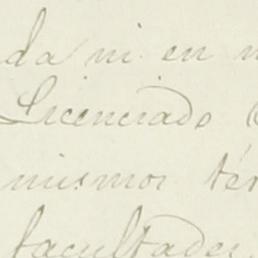 da ni en
Licenciado
mismos tér
facultades